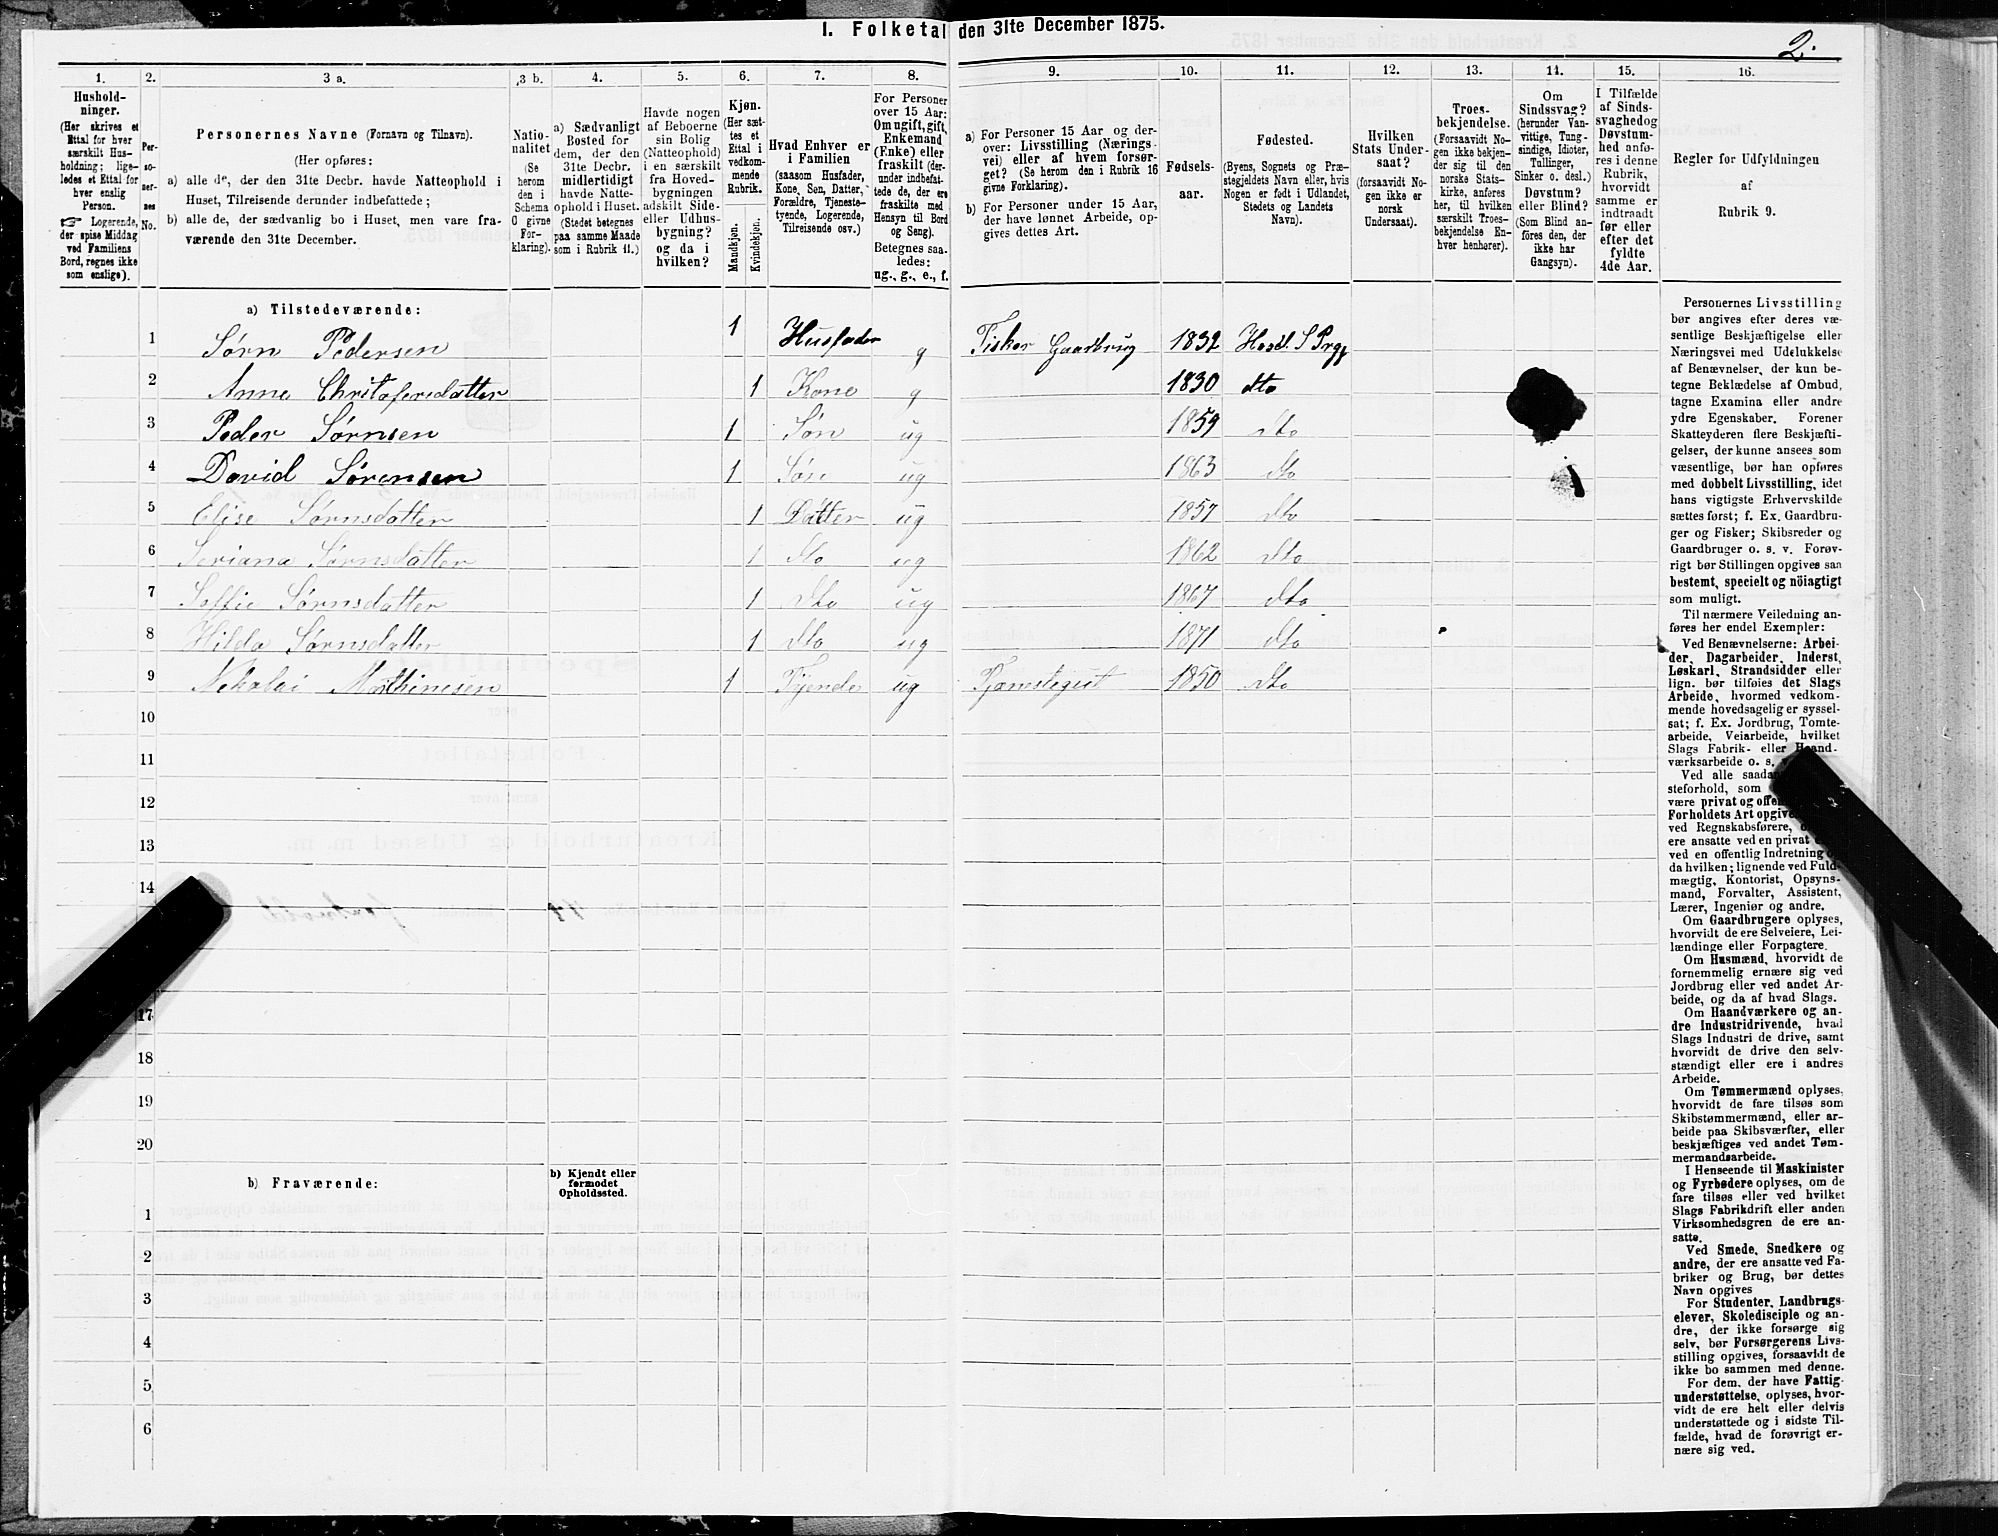 I. Folketal den 31te December 1875.
2.
1. 2. 3 a. 3 b. 4. 5. 6. 7. 8. 9. 10. 11. 12. 13. 14. 15. 16.
Hushold-
ninger.
(Her skrives et
Ettal for hver
særskilt Hus-
holdning; lige-
ledes et Ettal for
hver enslig
Person.
☞ Logerende,
der spise Middag
ved Familiens
Bord, regnes ikke
som enslige).
Per-
so-
ner-
nes
No.
Personernes Navne (Fornavn og Tilnavn).
(Her opføres:
a) alle de, der den 31te Decbr. havde Natteophold i
Huset, Tilreisende derunder indbefattede;
b) alle de, der sædvanlig bo i Huset, men vare fra-
værende den 31te December.
Natio-
nalitet
(Se
herom
den i
Schema
O givne
For-
klaring).
a) Sædvanligt
Bosted for
dem, der den
31te Decbr.
midlertidigt
havde Natte-
ophold i Huset.
(Stedet betegnes
paa samme Maade
som i Rubrik 11.)
Havde nogen
af Beboerne
sin Bolig
(Natteophold)
i en særskilt
fra Hoved-
bygningen
adskilt Side-
eller Udhus-
bygning?
og da i
hvilken?
Kjøn.
(Her sæt-
tes et
Ettal i
vedkom-
mende
Rubrik.
Mandkjøn.
Kvindekjøn.
Hvad Enhver er
i Familien
(saasom Husfader,
Kone, Søn, Datter,
Forældre, Tjeneste-
tyende, Logerende,
Tilreisende osv.)
For Personer
over 15 Aar:
Om ugift, gift,
Enkemand
(Enke) eller
fraskilt (der-
under indbefat-
tede de, der ere
fraskilte med
Hensyn til Bord
og Seng).
Betegnes saa-
ledes:
ug., g., e., f.
a) For Personer 15 Aar og der-
over: Livsstilling (Nærings-
vei) eller af hvem forsør-
get? (Se herom den i Rubrik 16
givne Forklaring).
b) For Personer under 15 Aar,
der have lønnet Arbeide, op-
gives dettes Art.
Fødsels-
aar.
Fødested.
(Byens, Sognets og Præ-
stegjeldets Navn eller, hvis
Nogen er født i Udlandet,
Stedets og Landets
Navn).
Hvilken
Stats Under-
saat?
(forsaavidt No-
gen ikke er
norsk
Undersaat).
Troes-
bekjendelse.
(Forsaavidt No-
gen ikke bekjen-
der sig til den
norske Stats-
kirke, anføres
her, til hvilken
særskilt Troes-
bekjendelse En-
hver henhører).
Om
Sindssvag?
(herunder Van-
vittige, Tung-
sindige, Idioter,
Tullinger,
Sinker o. desl.)
Døvstum?
eller Blind?
(Som Blind an-
føres den, der
ikke har
Gangsyn).
I Tilfælde
af Sinds-
svaghed og
Døvstum-
hed anfø-
res i denne
Rubrik,
hvorvidt
samme er
indtraadt
før eller
efter det
fyldte
4de Aar.
Regler for Udfyldningen
af
Rubrik 9.
a) Tilstedeværende:
1 Sørn Pedersen 1 Husfader g Fisker Gaardbrug 1832
2 Anne Christofersdatter 1 Kone g 1830 dto
3 Peder Sørnsen 1 Søn ug 1859 dto
4 David Sørensen 1 Søn ug 1863 dto
5 Elise Sørnsdatter 1 Datter ug 1857 dto
6 Seriana Sørnsdatter 1 dto ug 1862 dto
7 Soffie Sørnsdatter 1 dto ug 1867 dto
8 Hilda Sørnsdatter 1 dto ug 1871 dto
9 Nekolai Mathinesen 1 Tjende ug Tjænstegut 1850 dto
10
11
12
13
14
17
18
19
20
b) Fraværende:
b) Kjendt eller
formodet
Opholdssted.
1
2
3
4
5
6
Personernes Livsstilling
bør angives efter deres væ-
sentlige Beskjæftigelse eller
Næringsvei med Udelukkelse
af Benævnelser, der kun be-
tegne Beklædelse af Ombud,
tagne Examina eller andre
ydre Egenskaber. Forener
Skatteyderen flere Beskjæfti-
gelser, der kunne ansees som
væsentlige, bør han opføres
med dobbelt Livsstilling, idet
hans vigtigste Erhvervskilde
sættes først; f. Ex. Gaardbru-
ger og Fisker; Skibsreder og
Gaardbruger o. s. v. Forøv-
rigt bør Stillingen opgives saa
bestemt, specielt og nöiagtigt
som muligt.
Til nærmere Veiledning an-
føres her endel Exempler:
Ved Benævnelserne: Arbei-
der, Dagarbeider, Inderst,
Løskarl, Strandsidder eller
lign. bør tilføies det Slags
Arbeide, hvormed vedkom-
mende hovedsagelig er syssel-
sat; f. Ex. Jordbrug, Tomte-
arbeide, Veiarbeide, hvilket
Slags Fabrik- eller Haand-
værksarbeide o. s.
Ved alle
steforhold, som
være privat og
Forholdets Art
ved Regnskabsførere,
ere ansatte ved en privat
ved en offentlig Indretning
da hvilken; lignende ved Fuld-
mægtig, Kontorist, Opsyns-
mand, Forvalter, Assistent,
Lærer, Ingeniør og andre.
Om Gaardbrugere oplyses,
hvorvidt de ere Selveiere, Lei-
lændinge eller Forpagtere.
Om Husmænd, hvorvidt de
fornemmelig ernære sig ved
Jordbrug eller ved andet Ar-
beide, og da af hvad Slags.
Om Haandværkere og an-
dre Industridrivende, hvad
Slags Industri de drive, samt
hvorvidt de drive den selv-
stændigt eller ere i andres
Arbeide.
Om Tømmermænd oplyses,
hvorvidt de fare tilsøs som
Skibstømmermænd, eller ar-
beide paa Skibsværfter, eller
beskjæftiges ved andet Tøm-
mermandsarbeide.
I Henseende til Maskinister
og Fyrbødere oplyses, om de
fare tilsøs eller ved hvilket
Slags Fabrikdrift eller anden
Virksomhedsgren de ere an-
satte.
Ved Smede, Snedkere og
andre, der ere ansatte ved Fa-
briker og Brug, bør dettes
Navn opgives
For Studenter, Landbrugs-
elever, Skoledisciple og an-
dre, der ikke forsørge sig
selv, bør Forsørgerens Livs-
stilling opgives, forsaavidt de
ikke bo sammen med denne.
For dem, der have Fattig-
understøttelse, oplyses, hvor-
vidt de ere helt eller delvis
understøttede og i sidste Til-
fælde, hvad de forøvrigt er-
nære sig ved.